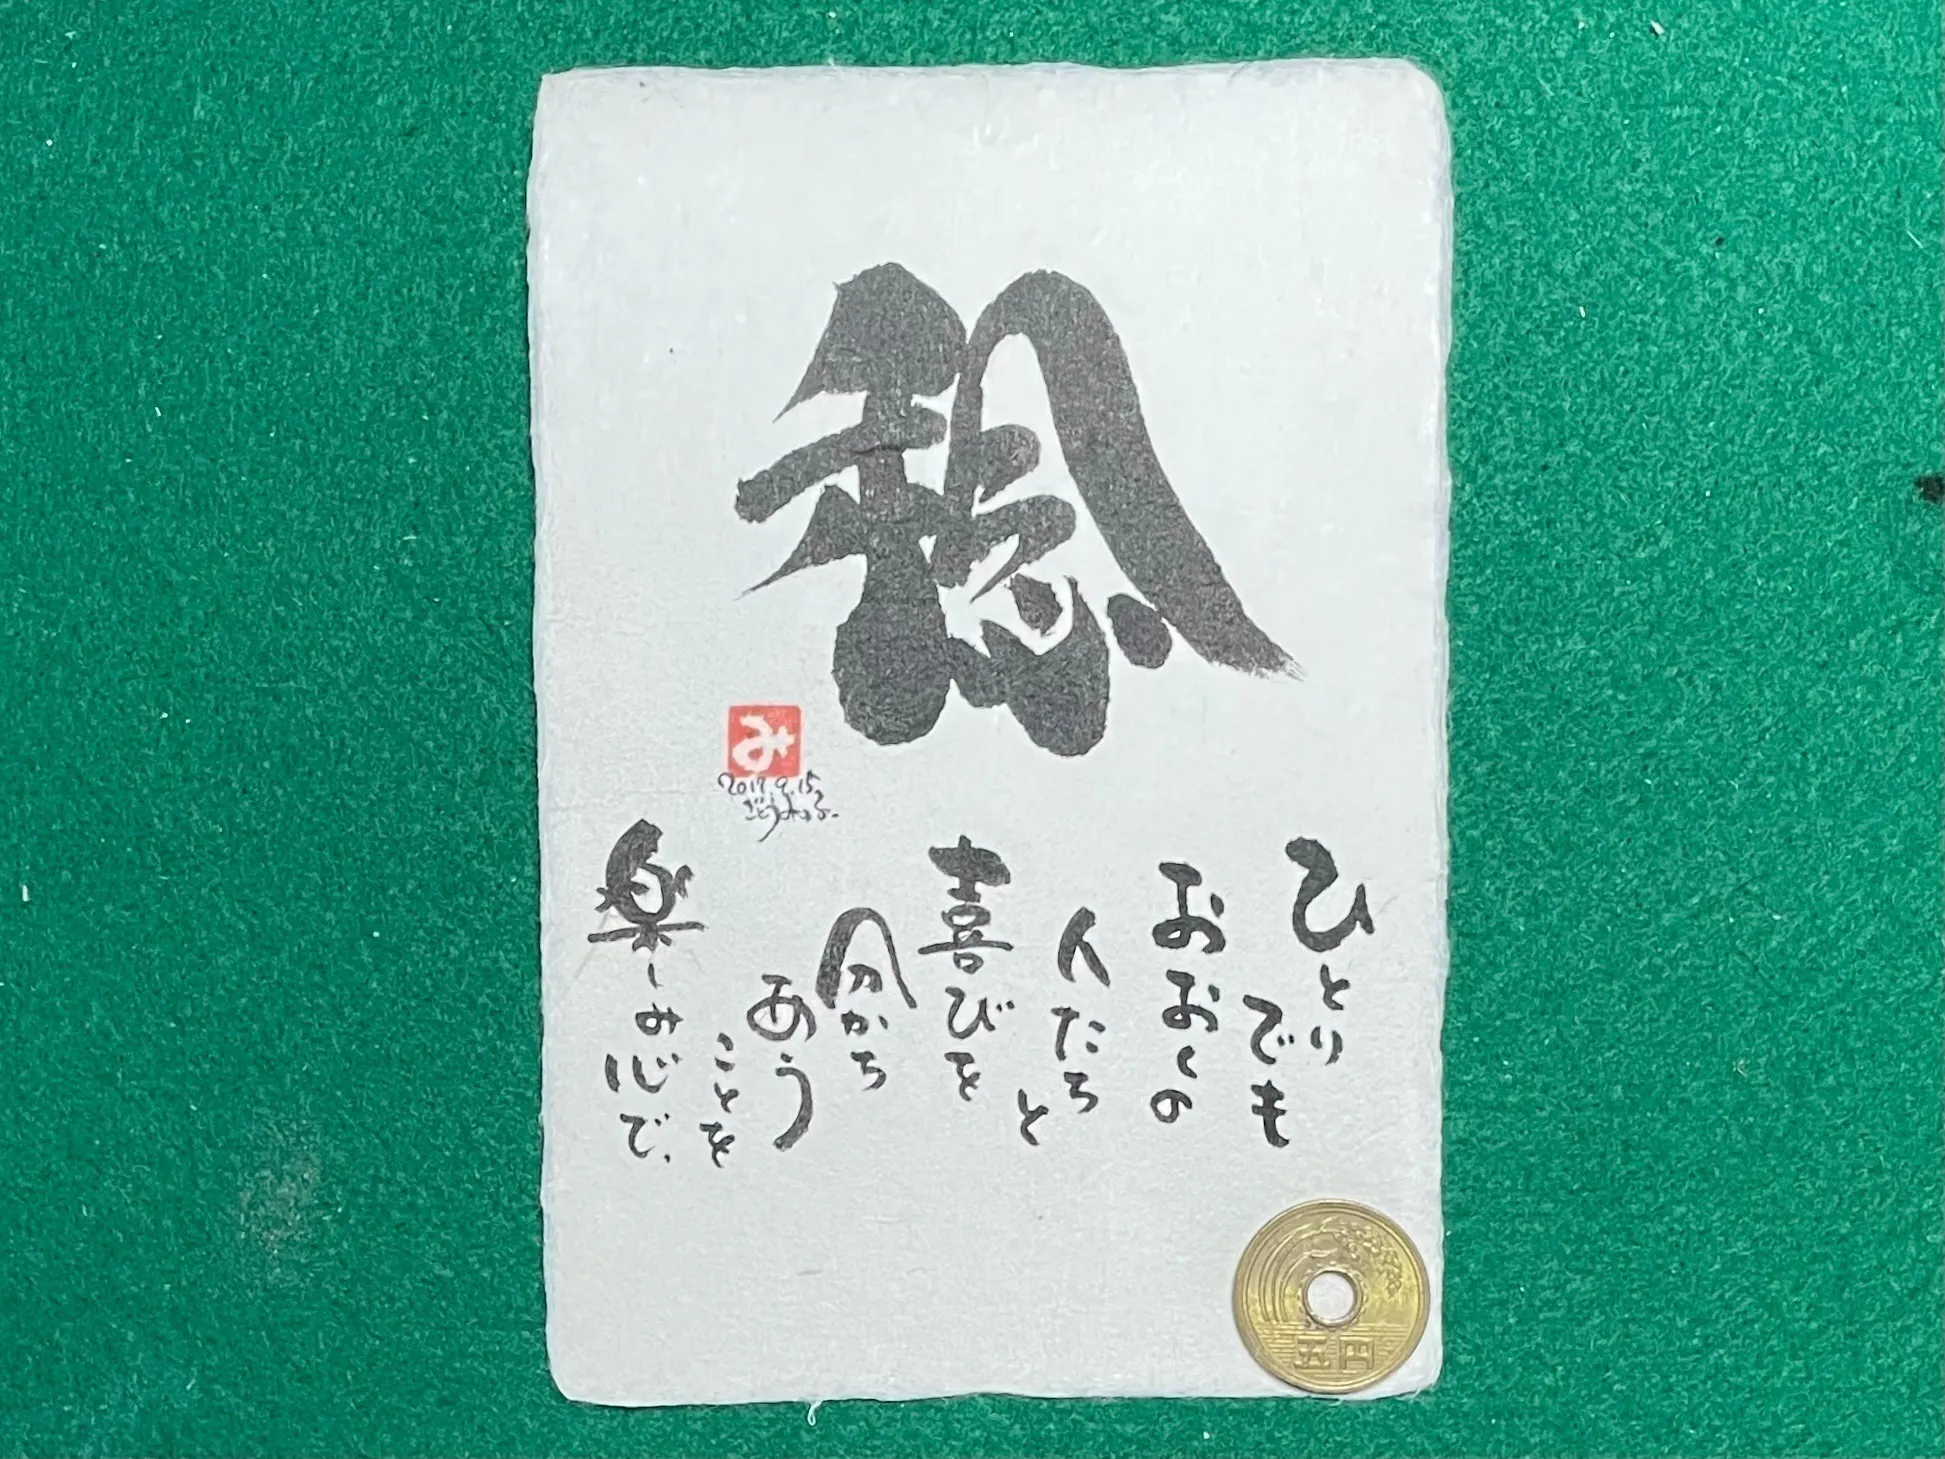 稔
ひとり
でも
おおくの
人たち
と
喜びを
分かち
あう
ことを
楽しみ心で、
み
2017.9.15
ごとうみのる
五円